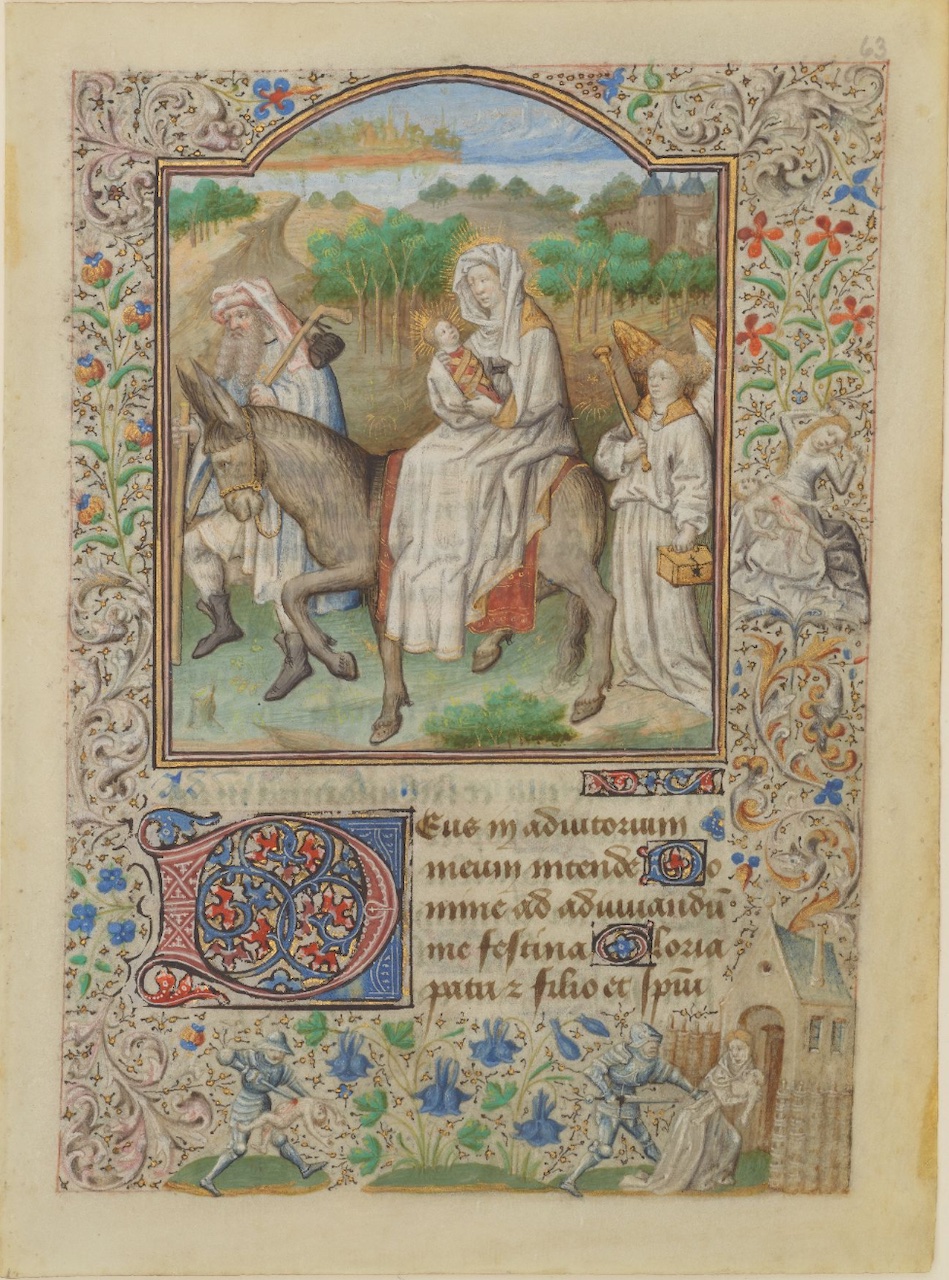 63
Deus in adiutorium
meum intende Do
mine ad adiuuandū
me festina Gloria
patri ⁊ filio et spūi